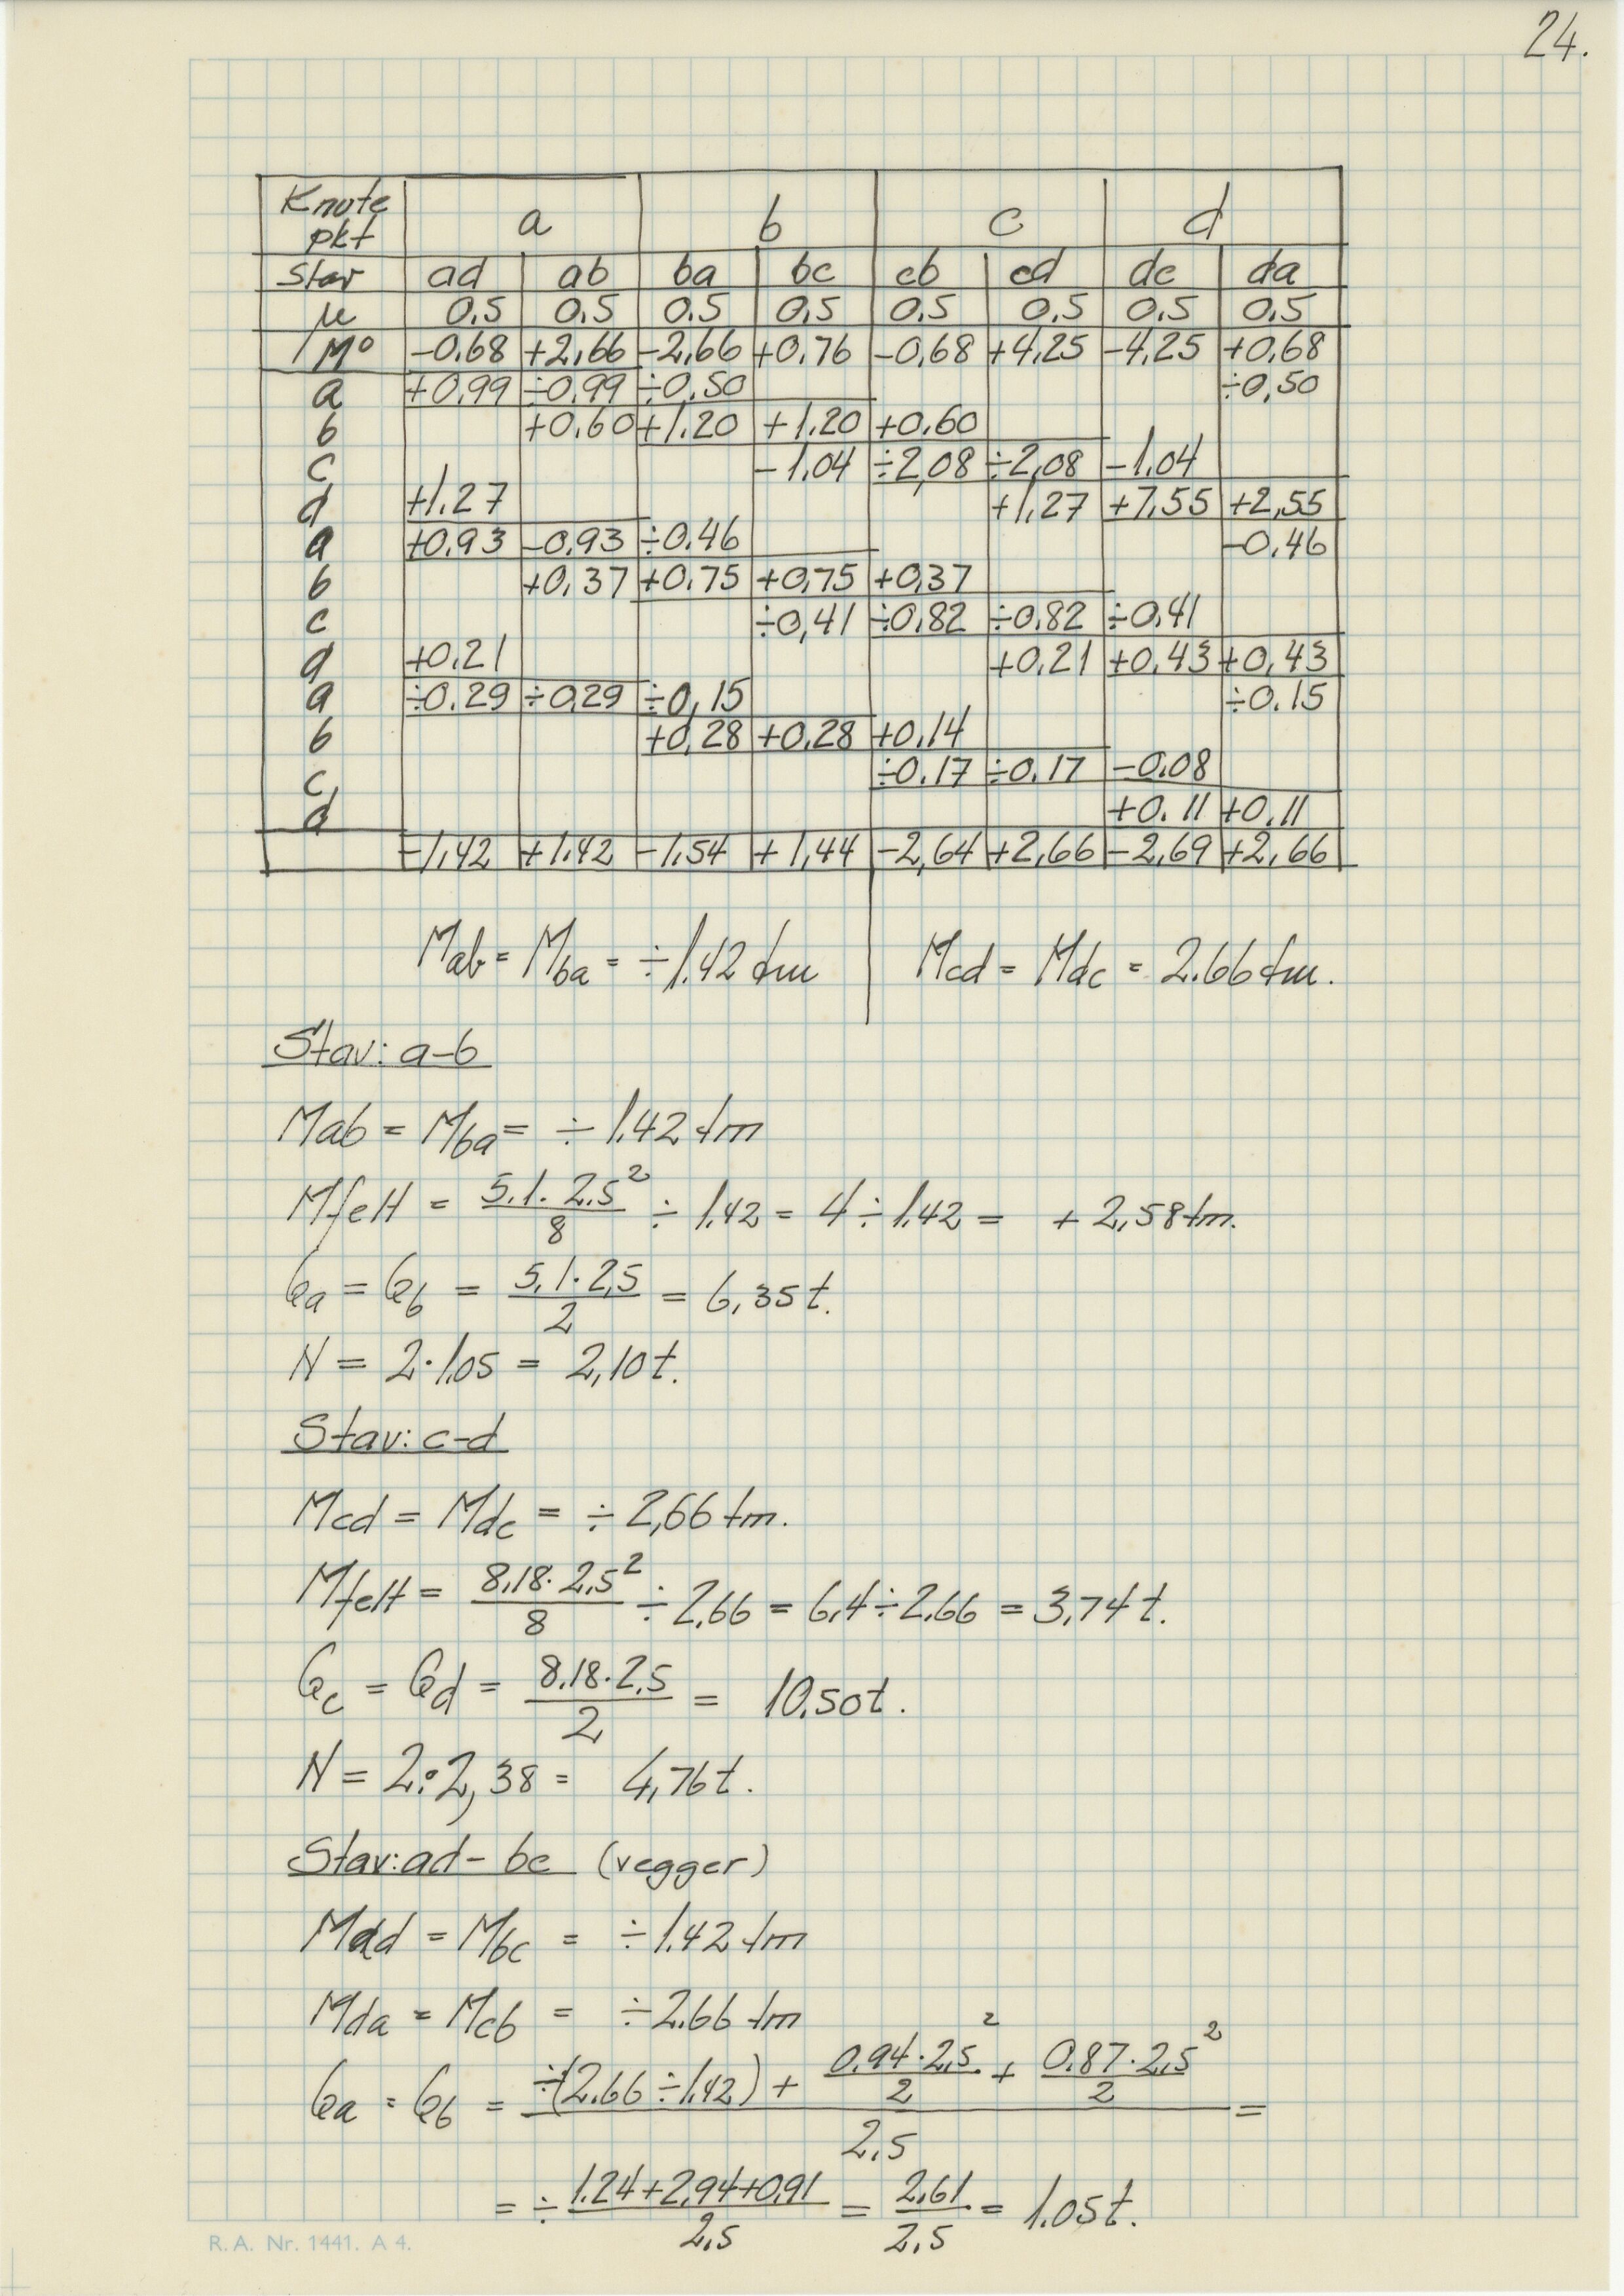 24.
Knute pkt a b c d
Stav ad ab ba bc cb cd dc da
μ 0.5 0.5 0.5 0.5 0.5 0.5 0.5 0.5
M° -0.68 +2.66 -2.66 +0.76 -0.68 +4.25 -4.25 +0.68
a +0.99 ÷0.99 ÷0.50 ÷0,50
b +0.60 +1.20 +1.20 +0.60
c -1.04 ÷2,08 ÷2,08 -1.04
d +1.27 +1.27 +7,55 +2,55
a +0.93 -0.93 ÷0.46 -0.46
b +0,37 +0.75 +0,75 +0,37
c ÷0,41 ÷0.82 ÷0.82 ÷0.41
d +0.21 +0.21 +0.43 +0.43
a ÷0.29 ÷0.29 ÷0,15 ÷0.15
b +0,28 +0.28 +0.14
c ÷0.17 ÷0.17 -0.08
d +0.11 +0.11
-1,42 +1.42 -1.54 +1,44 -2,64 +2,66 -2,69 +2,66
Mab = Mba = ÷1.42 tm Mcd = Mdc = 2.66 tm.
Stav: a-b
Mab = Mba = ÷ 1.42 tm
Mfelt = 5.1 · 2.5² / 8 ÷ 1.42 = 4 ÷ 1.42 = + 2,58 tm.
Qa = Qb = 5,1 · 2,5 / 2 = 6,35 t.
N = 2 · 1.05 = 2,10 t.
Stav: c-d
Mcd = Mdc = ÷ 2,66 tm.
Mfelt = 8.18 · 2,5² / 8 ÷ 2.66 = 6,4 ÷ 2.66 = 3,74 t.
Qc = Qd = 8.18 · 2,5 / 2 = 10.50 t.
N = 2 · 2,38 = 4,76 t.
Stav: ad - bc (vegger)
Mad = Mbc = ÷ 1.42 tm
Mda = Mcb = ÷ 2.66 tm
Qa = Qb = ÷(2.66 ÷ 1.42) + 0.94 · 2,5² / 2 + 0.87 · 2,5² / 2 / 2,5 =
= ÷ 1.24 + 2,94 + 0.91 / 2,5 = 2,61 / 2,5 = 1.05 t.
R. A. Nr. 1441. A 4.